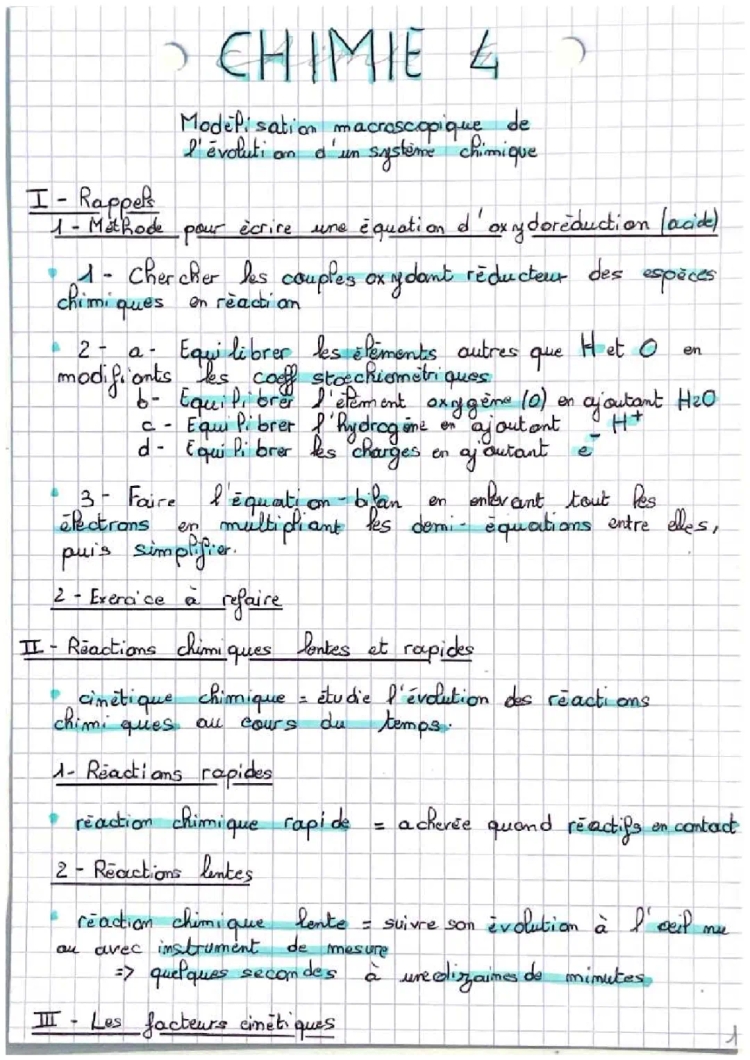 CHIMIE 4
Modélisation macroscopique de
l'évolution d'un système chimique
I - Rappels
1 - Méthode pour écrire une équation d'oxydoréduction (acide)
• 1 - Chercher les couples oxydant réducteur des espèces
chimiques en réaction
• 2 - a - Equilibrer les éléments autres que H et O en
modifionts les coeff stoechiométriques
b - Equilibrer l'élément oxygène (O) en ajoutant H2O
c - Equilibrer l'hydrogène en ajoutant H+
d - Equilibrer les charges en ajoutant e-
• 3 - Faire l'équation-bilan en enlevant tout les
électrons en multipliant les demi-équations entre elles,
puis simplifier.
2 - Exercice à refaire
II - Réactions chimiques lentes et rapides
• cinétique chimique = étudie l'évolution des réactions
chimiques au cours du temps.
1 - Réactions rapides
• réaction chimique rapide = achevée quand réactifs en contact
2 - Réactions lentes
• réaction chimique lente = suivre son évolution à l'oeil nu
ou avec instrument de mesure
=> quelques secondes à une dizaines de minutes
III - Les facteurs cinétiques
1